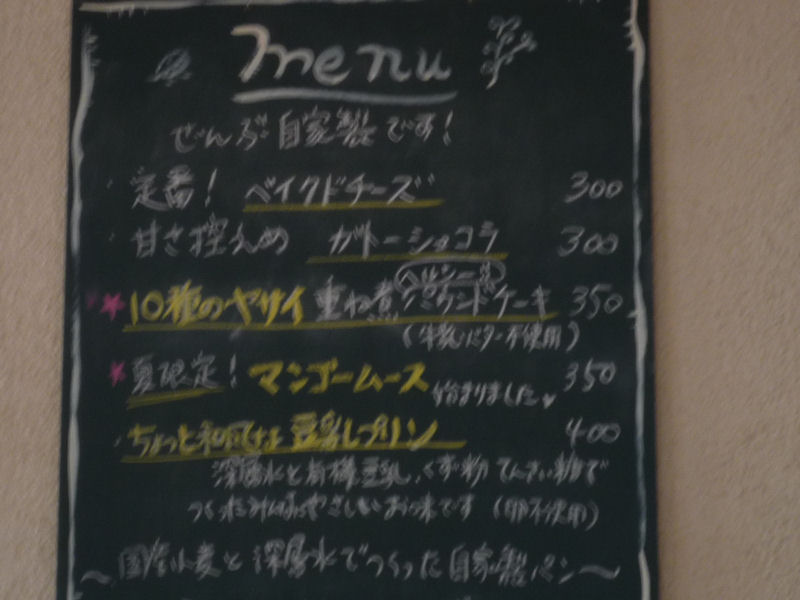 menu
ぜんぶ自家製です!
定番! ベイクドチーズ 300
甘さ控えめ ガトーショコラ 300
ヘルシーな
★10種のヤサイ 重ね煮 パウンドケーキ 350
(牛乳バター不使用)
★夏限定! マンゴームース 始まりました 350
・ちょっと和風な 豆乳プリン 400
深層水と有機豆乳、くず粉 てんさい糖で
つくった やさしいお味です (卵不使用)
～国産小麦と深層水でつくった自家製パン～